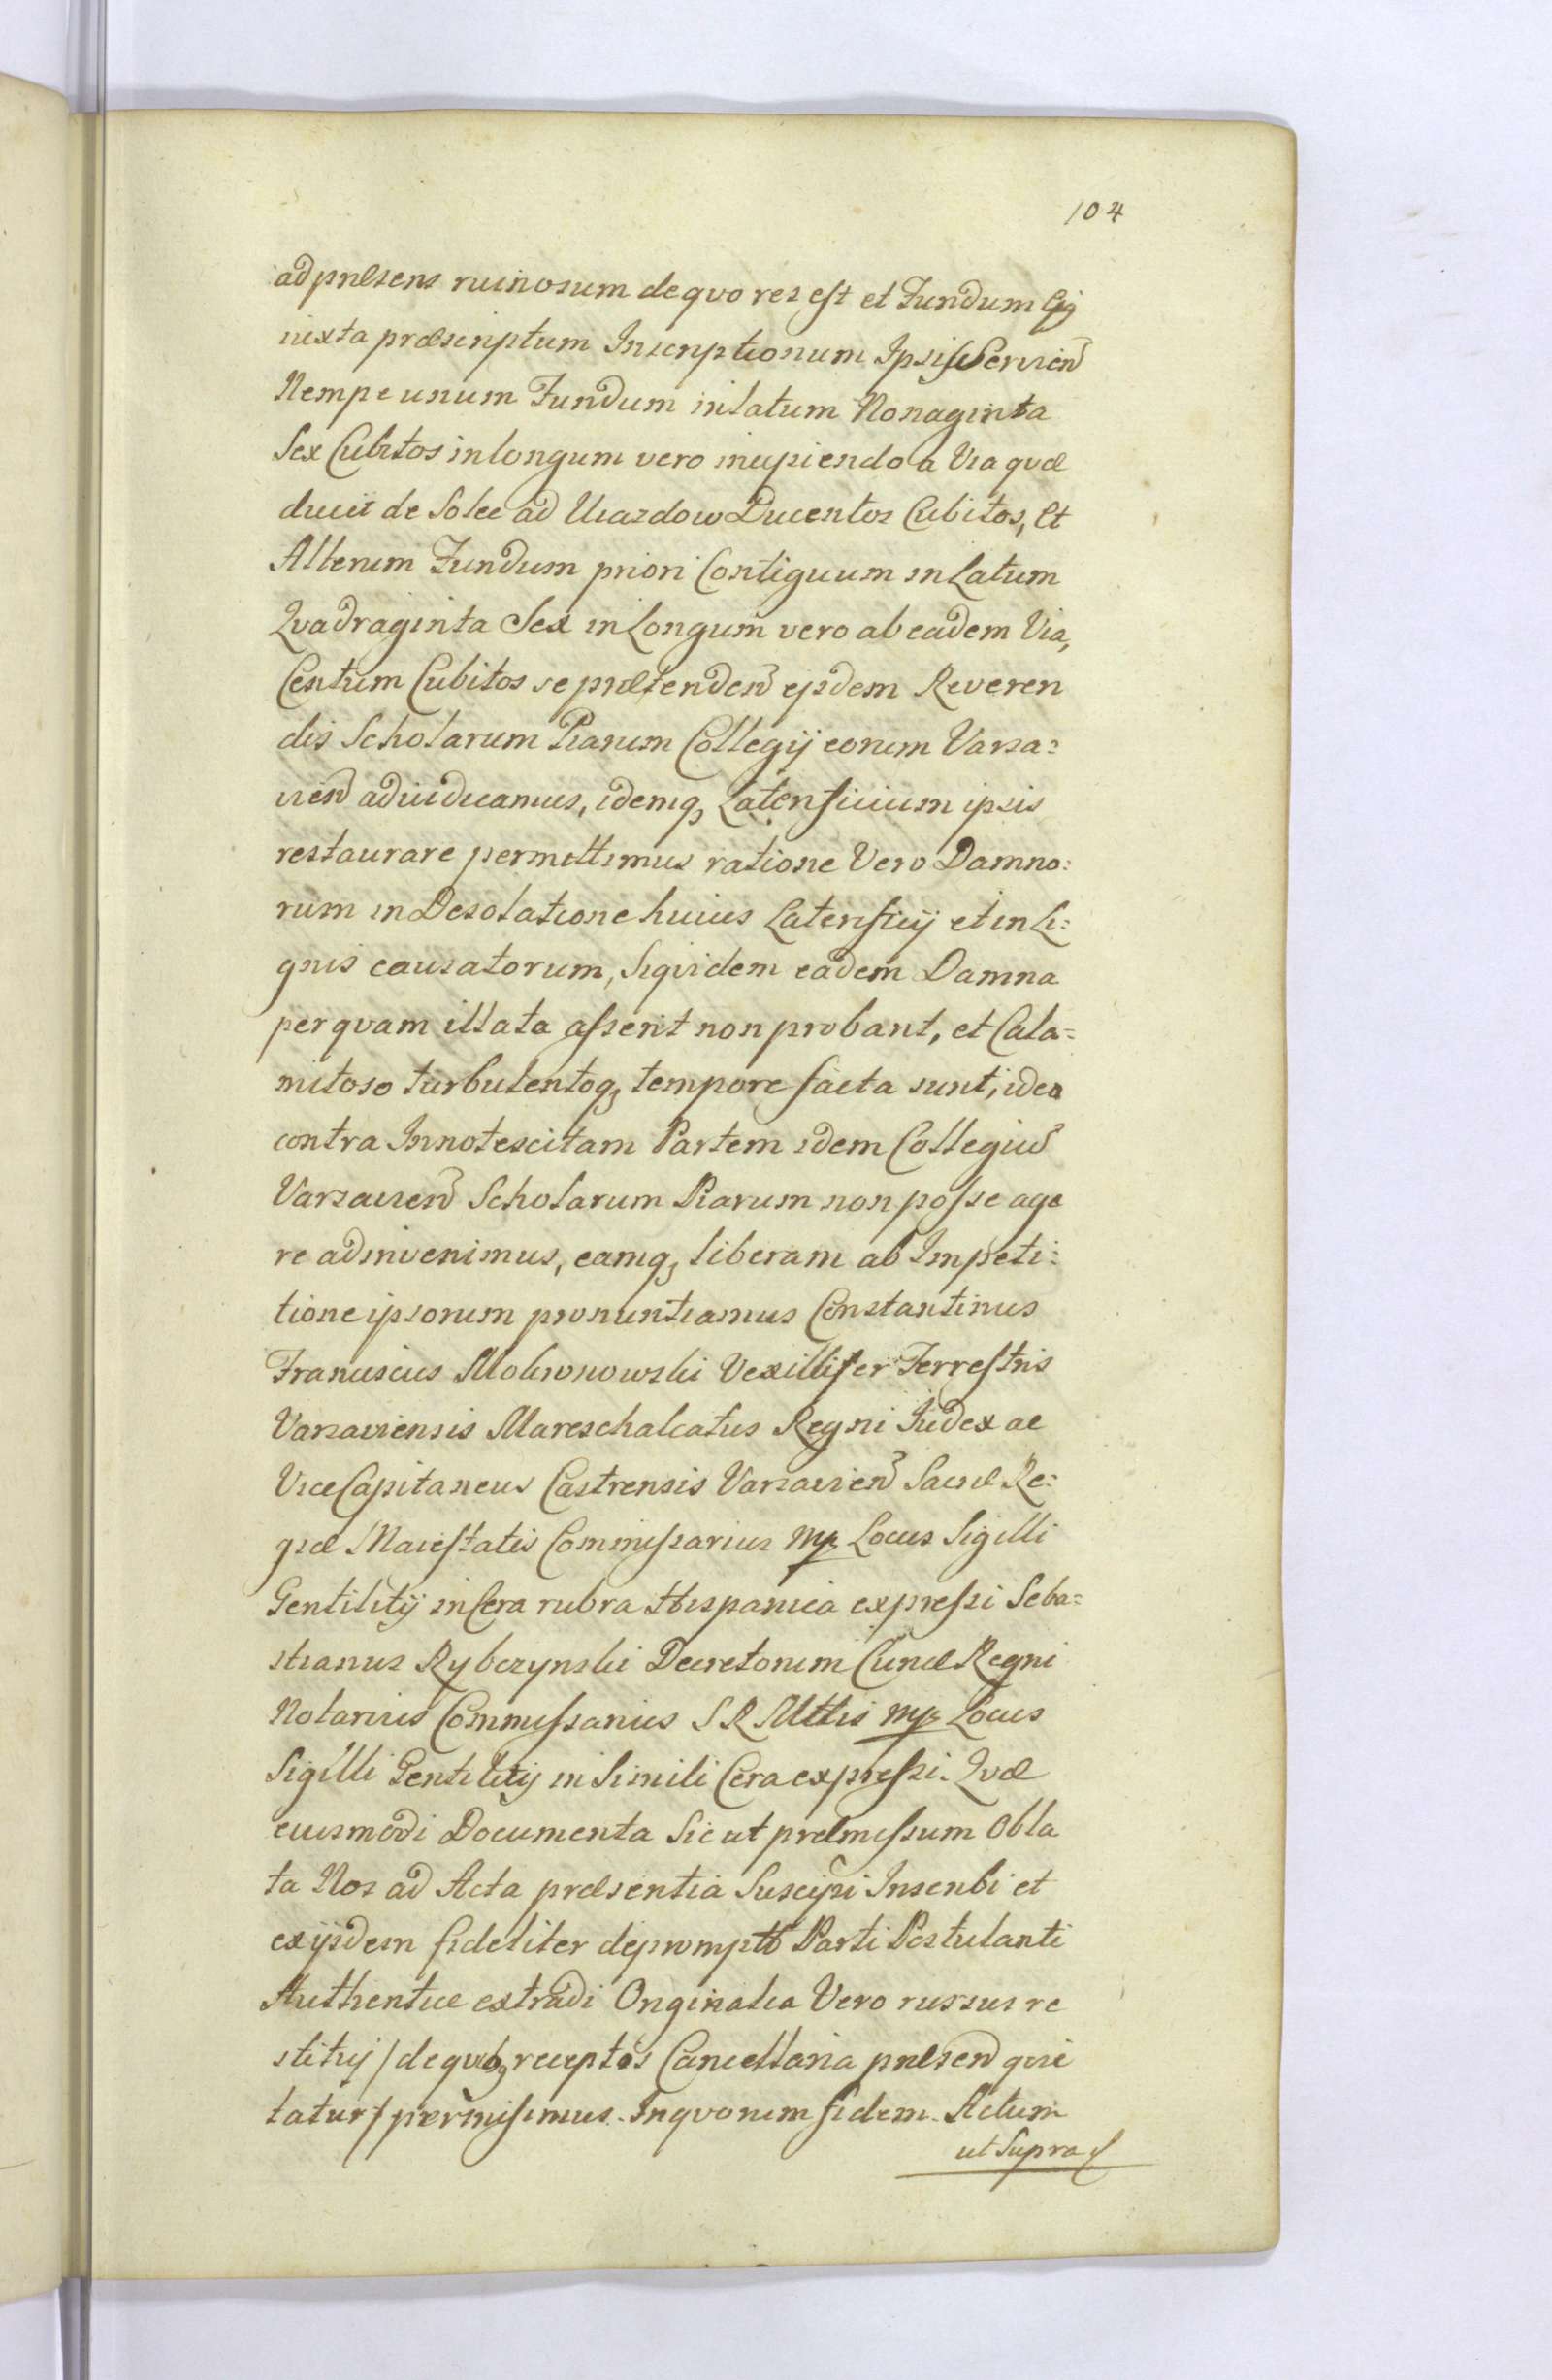 104
ad præsens ruinosum de quo res est et Fundum Ejq
iuxta præscriptum Inscriptionum Ipsis Servien
Nempe unum Fundum in latum Nonaginta
Sex Cubitos in longum vero incipiendo a Via quæ
ducit de Solec ad Uiazdow Ducentos Cubitos, Et
Alterum Fundum priori Contiguum in Latum
Quadraginta Sex in Longum vero ab eadem Via,
Centum Cubitos se prætenden ejsdem Reveren
dis Scholarum Piarum Collegij eorum Varsa=
vien adiudicamus, idemq Laterificium ipsis
restaurare permittimus ratione Vero Damno=
rum in Desolatione huius Laterificij et in Li=
gnis causatorum, Siquidem eadem Damna
per quam illata asserit non probant, et Cala=
mitoso turbulentoq tempore facta sunt, ideo
contra Innotescitam Partem idem Collegium
Varsavien Scholarum Piarum non posse age
re adinvenimus, eamq liberam ab Impeti=
tione ipsorum pronuntiamus Constantinus
Franciscus Mokronowski Vexillifer Terrestris
Varsaviensis Mareschalcatus Regni Iudex ac
ViceCapitaneus Castrensis Varsavien Sacræ Re=
giæ Maiestatis Commissarius mp Locus Sigilli
Gentilitij in Cera rubra Hispanica expressi Seba=
stianus Rybczynski Decretorum Curiæ Regni
Notarius Commissarius S R Mttis mp Locus
Sigilli Gentilitij in Simili Cera expressi. Quæ
eiusmodi Documenta Sic ut præmissum Obla
ta Nos ad Acta præsentia Suscipi Inscribi et
ex ijsdem fideliter deprompta Parti Postulanti
Authentice extradi Originalia Vero rursus re
stitui / de quibq receptis Cancellaria præsen qui
tatur / permisimus. In quorum fidem. Actum
ut Supra